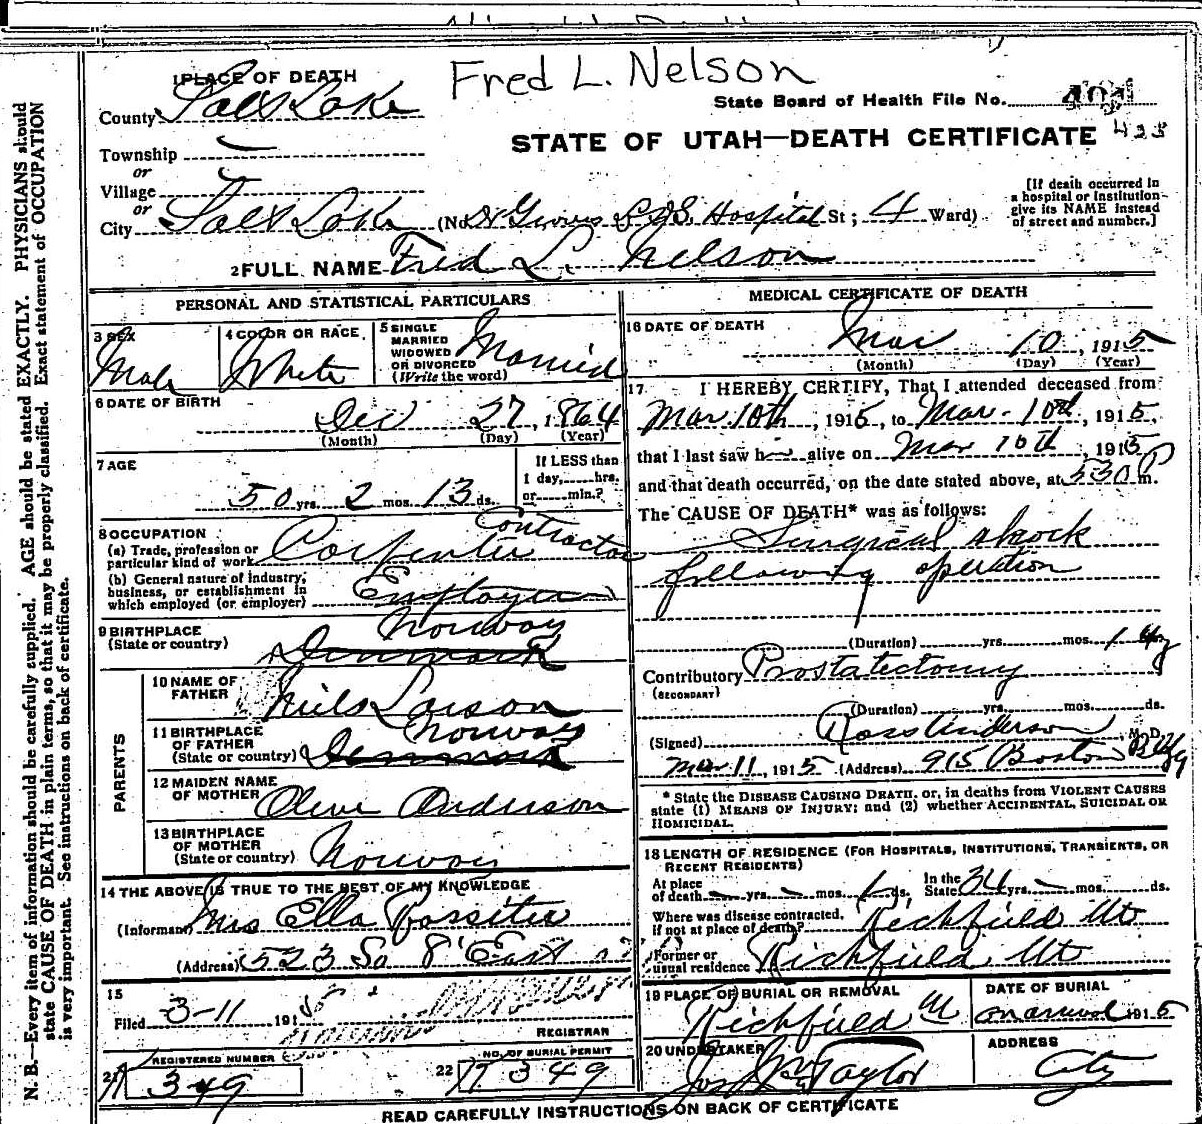 Fred L. Nelson
1 PLACE OF DEATH
County Salt Lake
State Board of Health File No.
STATE OF UTAH—DEATH CERTIFICATE 423
Township
or
Village
or
City Salt Lake (No. L.D.S. Hospital St; 4 Ward)
[If death occurred in
a hospital or institution
give its NAME instead
of street and number.]
2 FULL NAME Fred L. Nelson
PERSONAL AND STATISTICAL PARTICULARS
3 SEX
Male
4 COLOR OR RACE
White
5 SINGLE
MARRIED
WIDOWED
OR DIVORCED
(Write the word)
Married
6 DATE OF BIRTH
Dec 27, 1864
(Month) (Day) (Year)
7 AGE
50 yrs. 2 mos. 13 ds.
If LESS than
1 day, hrs.
or min.?
8 OCCUPATION
(a) Trade, profession or
particular kind of work Carpenter Contractor
(b) General nature of industry,
business, or establishment in
which employed (or employer) Employer
9 BIRTHPLACE
(State or country)
Norway
Denmark
PARENTS
10 NAME OF
FATHER
Niels Larson
11 BIRTHPLACE
OF FATHER
(State or country)
Norway
Denmark
12 MAIDEN NAME
OF MOTHER
Olive Anderson
13 BIRTHPLACE
OF MOTHER
(State or country)
Norway
14 THE ABOVE IS TRUE TO THE BEST OF MY KNOWLEDGE
(Informant) Mrs Ella Rossiter
(Address) 523 So 8 East
15
Filed 3-11 1915
REGISTRAR
21 REGISTERED NUMBER
349
22 NO. OF BURIAL PERMIT
349
MEDICAL CERTIFICATE OF DEATH
16 DATE OF DEATH
Mar 10, 1915
(Month) (Day) (Year)
17 I HEREBY CERTIFY, That I attended deceased from
Mar 10th, 1915, to Mar. 10th, 1915,
that I last saw him alive on Mar 10th, 1915
and that death occurred, on the date stated above, at 530 P m.
The CAUSE OF DEATH* was as follows:
Surgical shock
following operation
(Duration) yrs. mos. 1 day
Contributory Prostatectomy
(SECONDARY)
(Duration) yrs. mos. ds.
(Signed) Ross Anderson M. D.
Mar 11, 1915 (Address) 915 Boston Bldg
* State the DISEASE CAUSING DEATH, or, in deaths from VIOLENT CAUSES
state (1) MEANS OF INJURY; and (2) whether ACCIDENTAL, SUICIDAL OR
HOMICIDAL.
18 LENGTH OF RESIDENCE (FOR HOSPITALS, INSTITUTIONS, TRANSIENTS, OR
RECENT RESIDENTS)
At place
of death yrs. mos. 1 ds.
In the
State 34 yrs. mos. ds.
Where was disease contracted,
if not at place of death? Richfield Ut
Former or
usual residence Richfield Ut
19 PLACE OF BURIAL OR REMOVAL
Richfield Ut
DATE OF BURIAL
on arrival 1915
20 UNDERTAKER
Jos Wm Taylor
ADDRESS
City
READ CAREFULLY INSTRUCTIONS ON BACK OF CERTIFICATE
N. B.—Every item of information should be carefully supplied. AGE should be stated EXACTLY. PHYSICIANS should
state CAUSE OF DEATH in plain terms, so that it may be properly classified. Exact statement of OCCUPATION
is very important. See instructions on back of certificate.